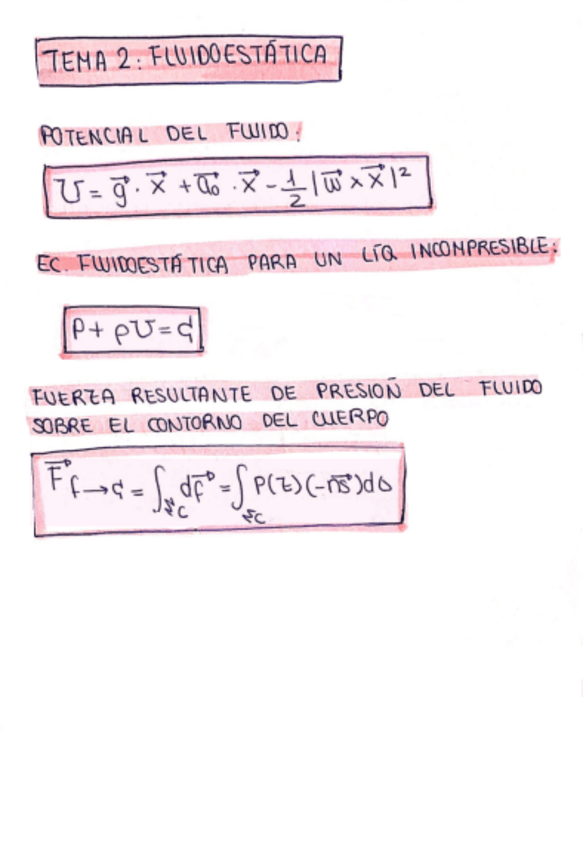 TEMA 2: FLUIDOESTÁTICA
POTENCIAL DEL FLUIDO:
U = g⃗ · x⃗ + a⃗₀ · x⃗ - 1/2 |ω⃗ × x⃗|²
EC. FLUIDOESTÁTICA PARA UN LÍQ. INCOMPRESIBLE:
P + ρU = C
FUERZA RESULTANTE DE PRESIÓN DEL FLUIDO
SOBRE EL CONTORNO DEL CUERPO
F⃗ f→c = ∫_Σc df⃗ = ∫_Σc P(z)(-n⃗s)dσ